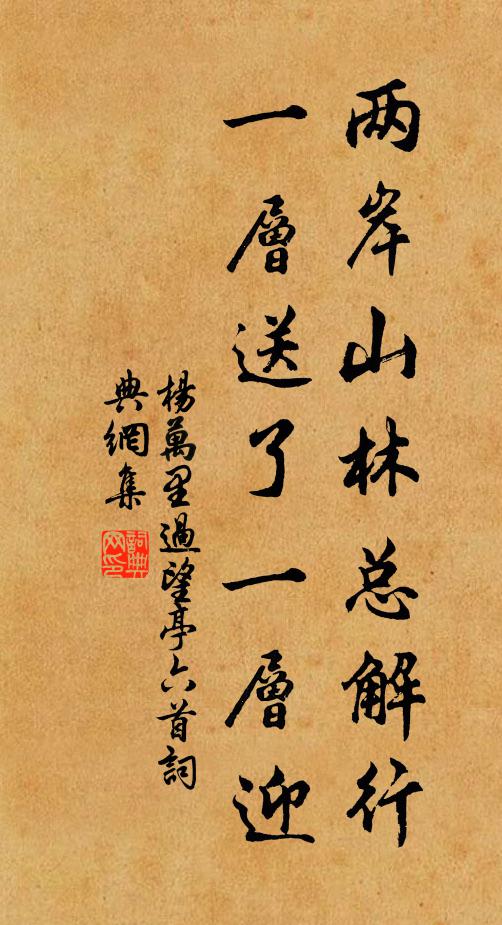 两岸山林总解行
一層送了一層迎
楊萬里過望亭六首詞
典網集
詞典网印